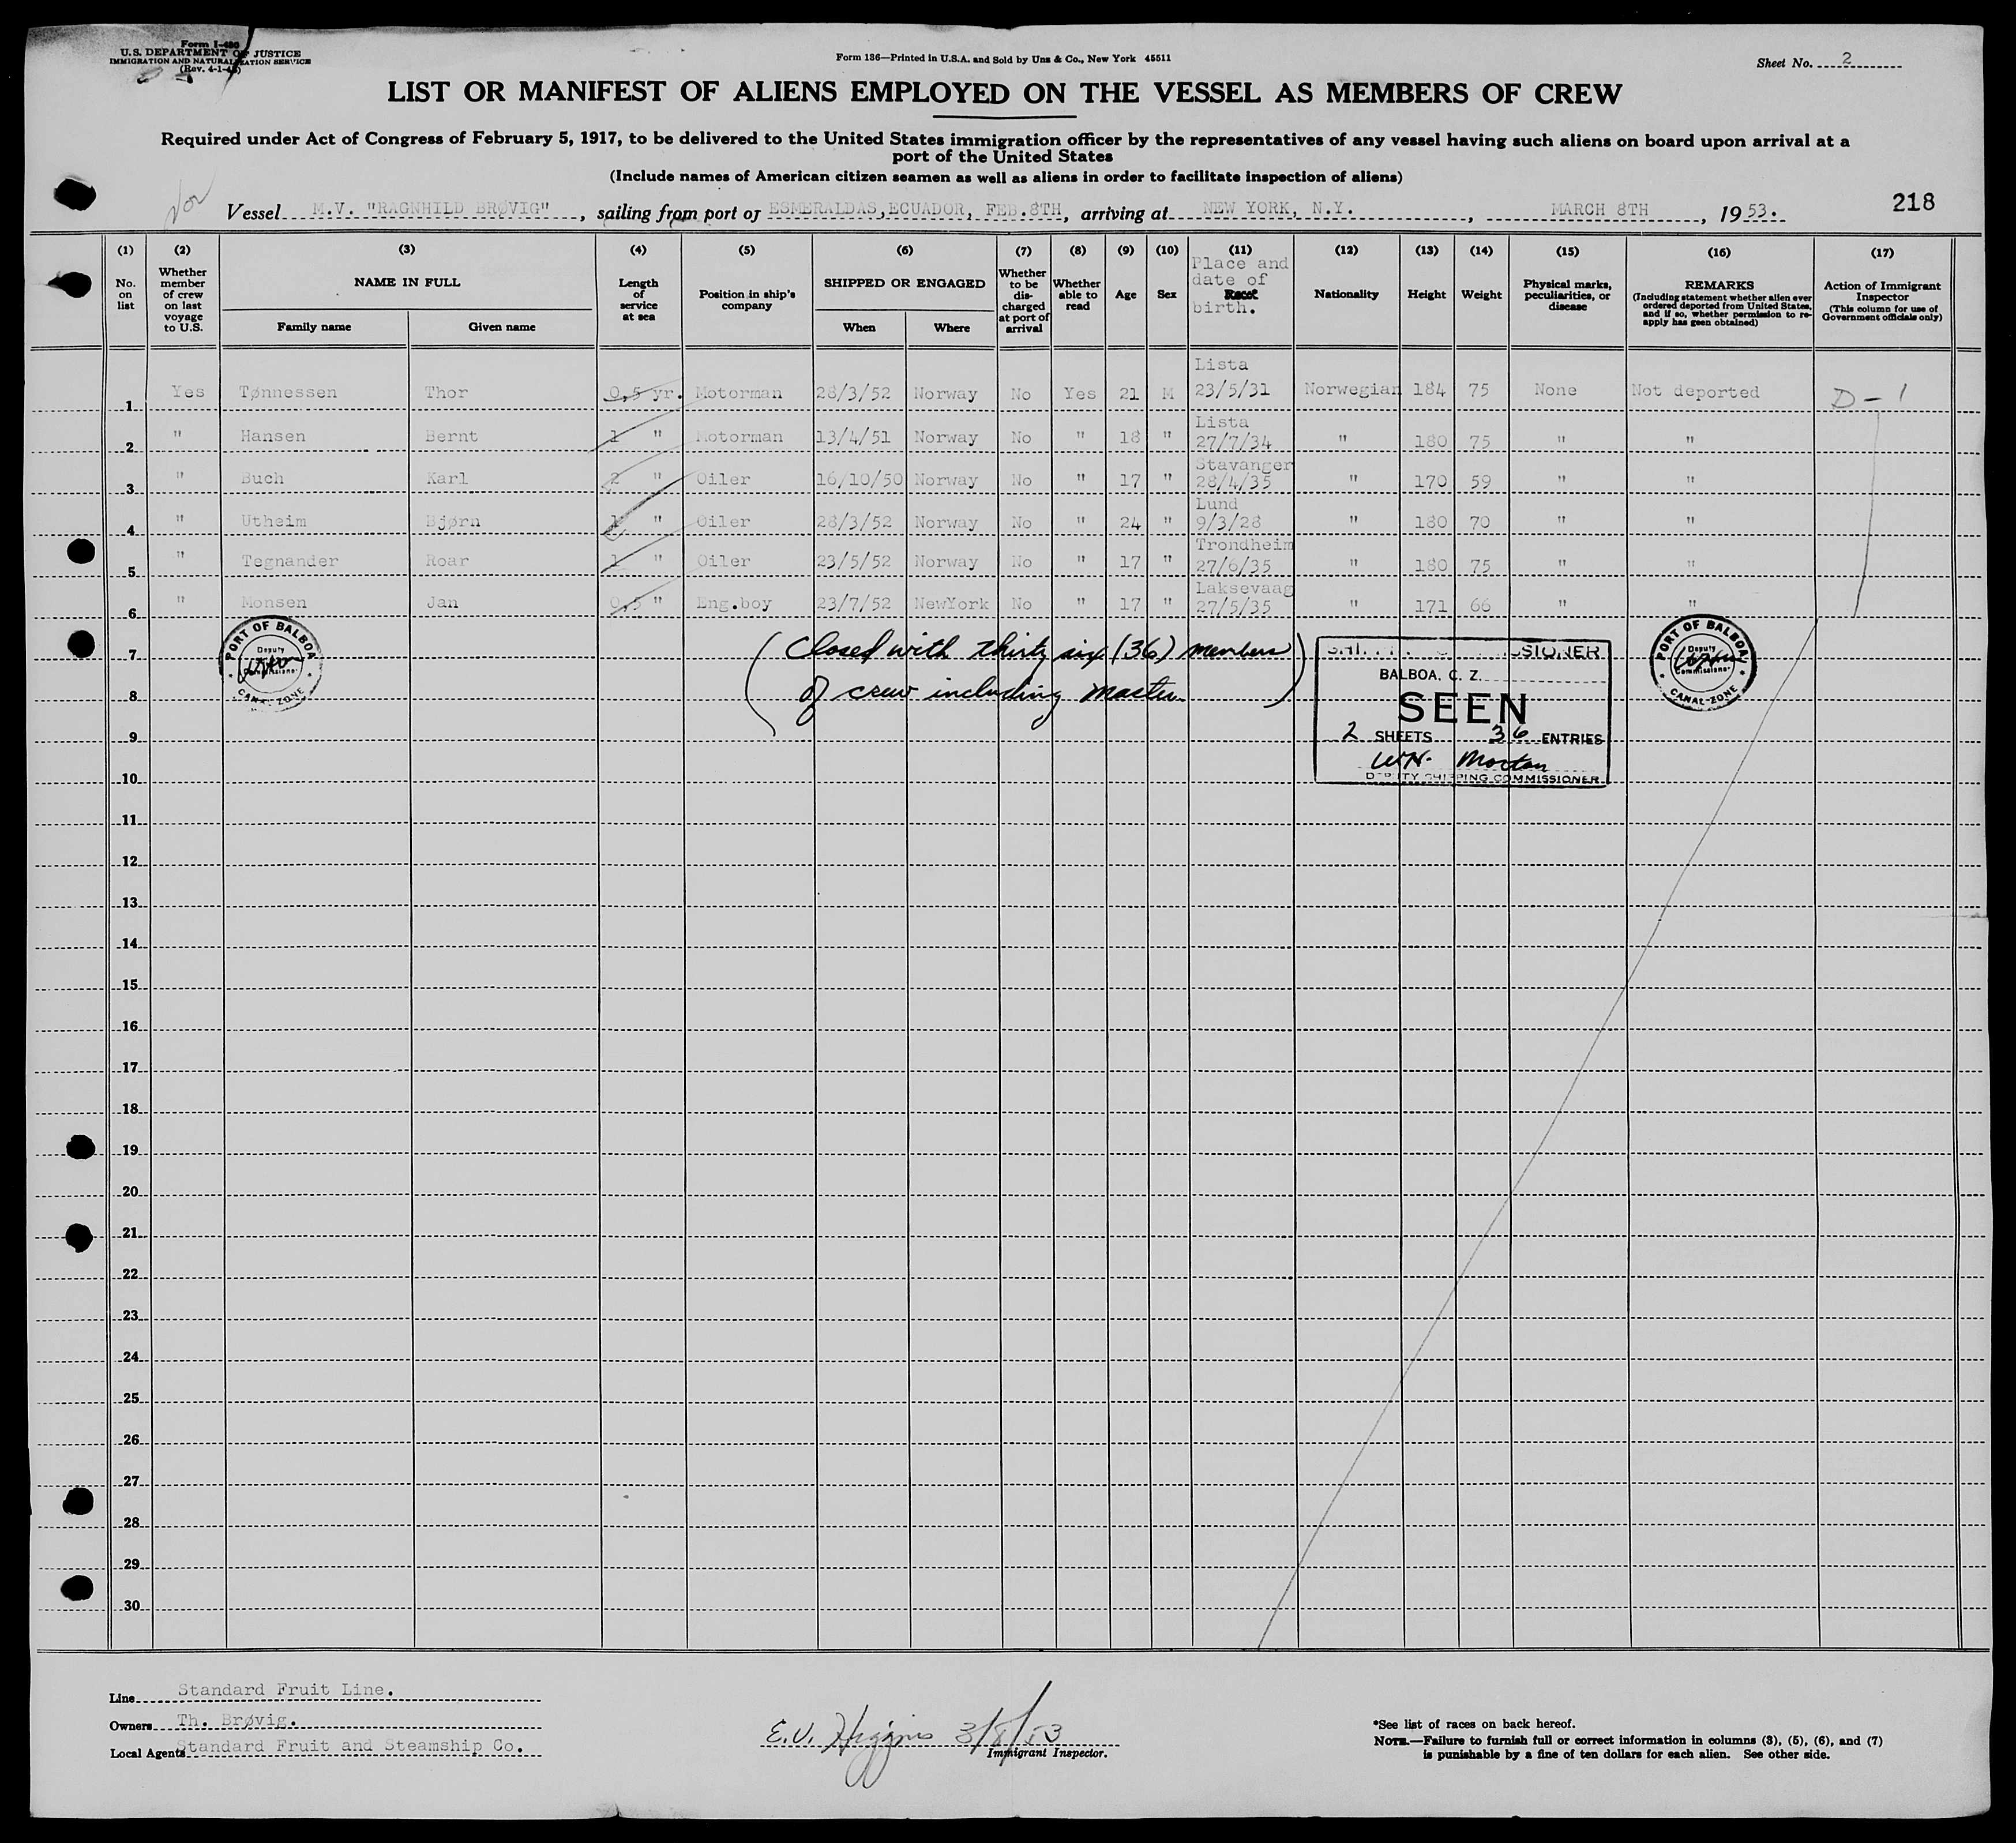 Form I-480
U.S. DEPARTMENT OF JUSTICE
IMMIGRATION AND NATURALIZATION SERVICE
(Rev. 4-1-4
Form 136—Printed in U.S.A. and Sold by Unz & Co., New York 45511
Sheet No. 2
LIST OR MANIFEST OF ALIENS EMPLOYED ON THE VESSEL AS MEMBERS OF CREW
Required under Act of Congress of February 5, 1917, to be delivered to the United States immigration officer by the representatives of any vessel having such aliens on board upon arrival at a
port of the United States
(Include names of American citizen seamen as well as aliens in order to facilitate inspection of aliens)
Nor
Vessel M.V. "RAGNHILD BRØVIG", sailing from port of ESMERALDAS, ECUADOR, FEB.8TH, arriving at NEW YORK, N.Y., MARCH 8TH, 1953.
218
(1) (2) (3) (4) (5) (6) (7) (8) (9) (10) (11) (12) (13) (14) (15) (16) (17)
No. on list
Whether member of crew on last voyage to U.S.
NAME IN FULL
Family name
Given name
Length of service at sea
Position in ship's company
SHIPPED OR ENGAGED
When
Where
Whether to be discharged at port of arrival
Whether able to read
Age
Sex
Place and date of Race birth.
Nationality
Height
Weight
Physical marks, peculiarities, or disease
REMARKS
(Including statement whether alien ever ordered deported from United States, and if so, whether permission to reapply has been obtained)
Action of Immigrant Inspector
(This column for use of Government officials only)
1 Yes Tønnessen Thor 0,5 yr. Motorman 28/3/52 Norway No Yes 21 M Lista 23/5/31 Norwegian 184 75 None Not deported D-1
2 " Hansen Bernt 1 " Motorman 13/4/51 Norway No " 18 " Lista 27/7/34 " 180 75 " "
3 " Buch Karl 2 " Oiler 16/10/50 Norway No " 17 " Stavanger 28/4/35 " 170 59 " "
4 " Utheim Bjørn 1 " Oiler 28/3/52 Norway No " 24 " Lund 9/3/28 " 180 70 " "
5 " Tegnander Roar 1 " Oiler 23/5/52 Norway No " 17 " Trondheim 27/6/35 " 180 75 " "
6 " Monsen Jan 0,5 " Eng.boy 23/7/52 NewYork No " 17 " Laksevaag 27/5/35 " 171 66 " "
7
8
9
10
11
12
13
14
15
16
17
18
19
20
21
22
23
24
25
26
27
28
29
30
PORT OF BALBOA
Deputy
Commissioner
CANAL ZONE
(Closed with thirty six (36) members
of crew including master)
SHIPPING COMMISSIONER
BALBOA, C. Z.
SEEN
2 SHEETS 36 ENTRIES
W.H. Morton
DEPUTY SHIPPING COMMISSIONER
PORT OF BALBOA
Deputy
Commissioner
CANAL ZONE
Line Standard Fruit Line.
Owners Th. Brøvig.
Local Agents Standard Fruit and Steamship Co.
E.V. Higgins 3/8/53
Immigrant Inspector.
*See list of races on back hereof.
NOTE.—Failure to furnish full or correct information in columns (3), (5), (6), and (7)
is punishable by a fine of ten dollars for each alien. See other side.